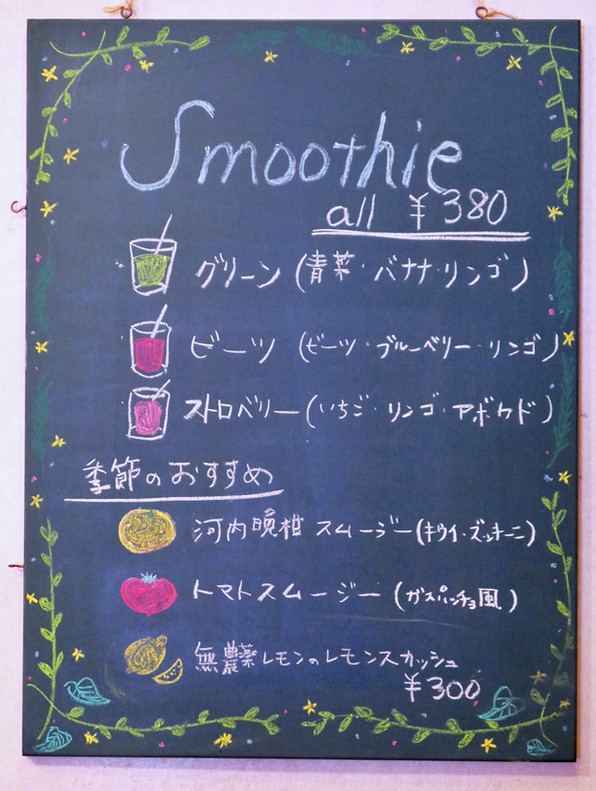 Smoothie
all ¥380
グリーン(青菜・バナナ・リンゴ)
ビーツ(ビーツ・ブルーベリー・リンゴ)
ストロベリー(いちご・リンゴ・アボカド)
季節のおすすめ
河内晩柑スムージー(キウイ・ズッキーニ)
トマトスムージー(ガスパチョ風)
無農薬レモンのレモンスカッシュ
¥300